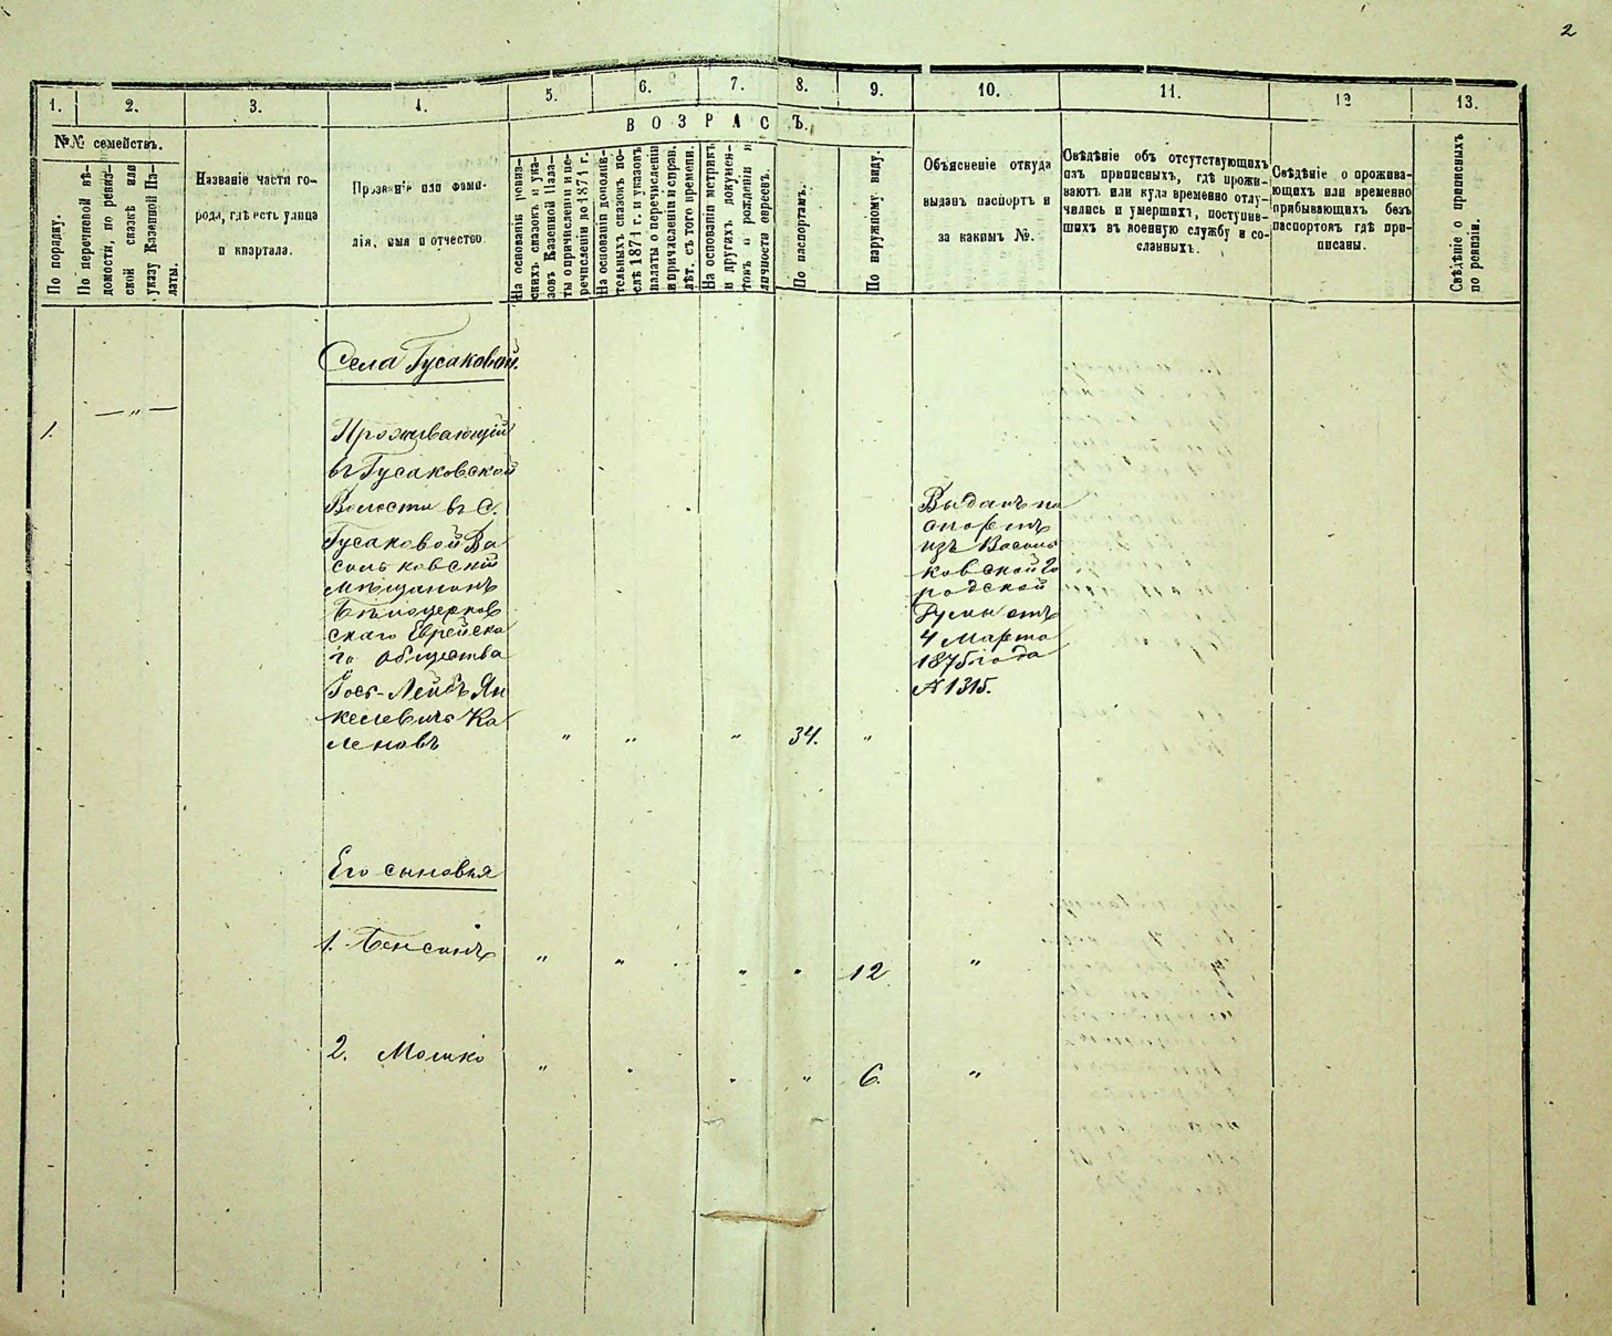 2
1. 2. 3. 4. 5. 6. 7. 8. 9. 10. 11. 12 13.
ВОЗРАСТЪ.
№№ семействъ.
По порядку.
По перечневой вѣ-
домости, по ревиз-
ской сказкѣ или
указу Казенной Па-
латы.
Названіе части го-
рода, гдѣ есть улица
и квартала.
Прозваніе или фами-
лія, имя и отчество
На основаніи ревиз-
скихъ сказокъ и ука-
зовъ Казенной Пала-
ты о причисленіи и пе-
речисленіи до 1871 г.
На основаніи дополни-
тельныхъ сказокъ по-
слѣ 1871 г. и указовъ
палаты о перечисленіи
и причисленіи и справ.
лѣт. съ того времени.
На основаніи метрикъ
и другихъ докумен-
товъ о рожденіи и
личности евреевъ.
По паспортамъ.
По наружному виду.
Объясненіе откуда
выданъ паспортъ и
за какимъ №.
Свѣдѣніе объ отсутствующихъ
изъ приписныхъ, гдѣ прожи-
ваютъ или куда временно отлу-
чились и умершихъ, поступив-
шихъ въ военную службу и со-
сланныхъ.
Свѣдѣніе о прожива-
ющихъ или временно
прибывающихъ безъ
паспортовъ гдѣ при-
писаны.
Свѣдѣніе о приписныхъ
по ревизіи.
Села Гусаковой.
1. — " —
Проживающій
въ Гусаковской
Волости въ С.
Гусаковой Ва
сильковскій
мѣщанинъ
Бѣлоцерков
скаго Еврейска
го общества
Іось-Лейбъ Ян
келевичъ Ка
леновъ " " " 34. "
Выданъ па
спортъ
изъ Василь
ковской Го
родской
Думы отъ
4 Марта
1875 года
№ 1315.
Его сыновья
1. Бенсинъ " " " " 12 "
2. Мошко " " " " 6. "